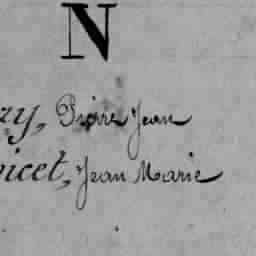 N
ry, Pierre Jean
nicet, Jean Marie